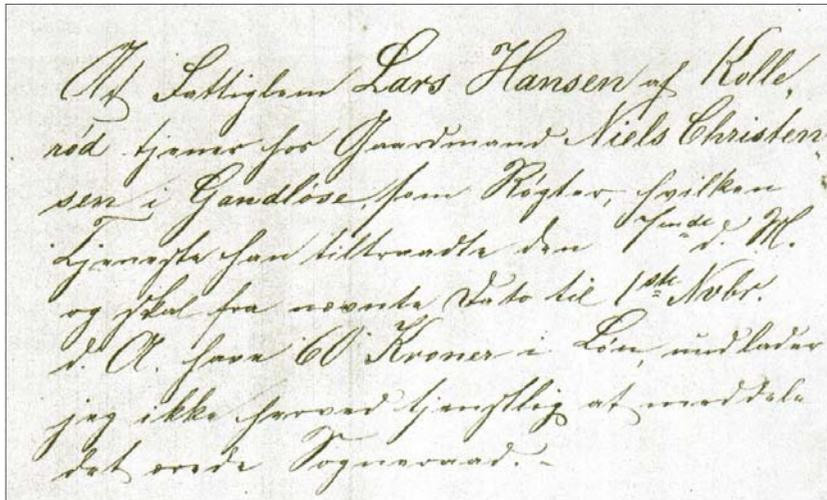 At Fattiglem Lars Hansen af Kolle,
rød tjener hos Gaardmand Niels Christen,
sen i Gandløse som Røgter, hvilken
Tjeneste han tiltraadte den 7ende d. M.
og skal fra nævnte Dato til 1ste Nvbr.
d. A. have 60 Kroner i Løn, undlader
jeg ikke herved tjenstlig at meddele
det ærede Sogneraad. -